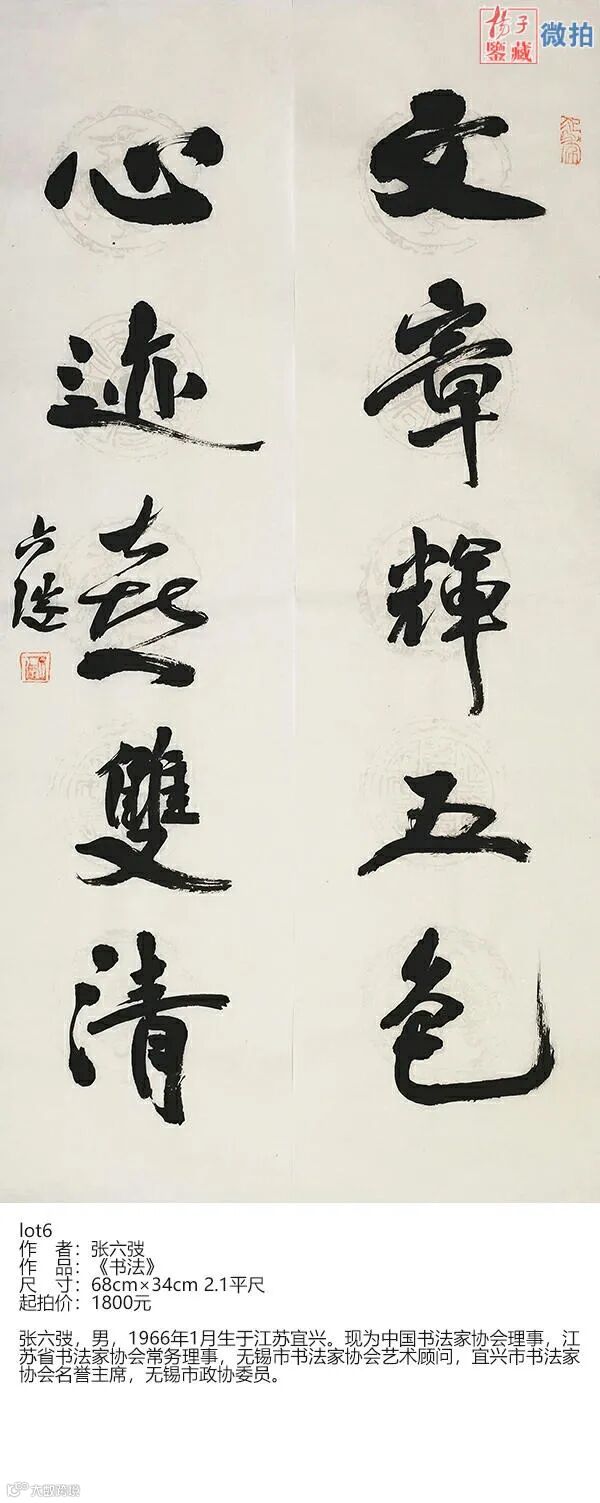 揚子
鑒藏
微拍
文章輝五色
心迹喜雙清
六弢
lot6
作 者：张六弢
作 品：《书法》
尺 寸：68cm×34cm 2.1平尺
起拍价：1800元
张六弢，男，1966年1月生于江苏宜兴。现为中国书法家协会理事，江
苏省书法家协会常务理事，无锡市书法家协会艺术顾问，宜兴市书法家
协会名誉主席，无锡市政协委员。
大数跨境